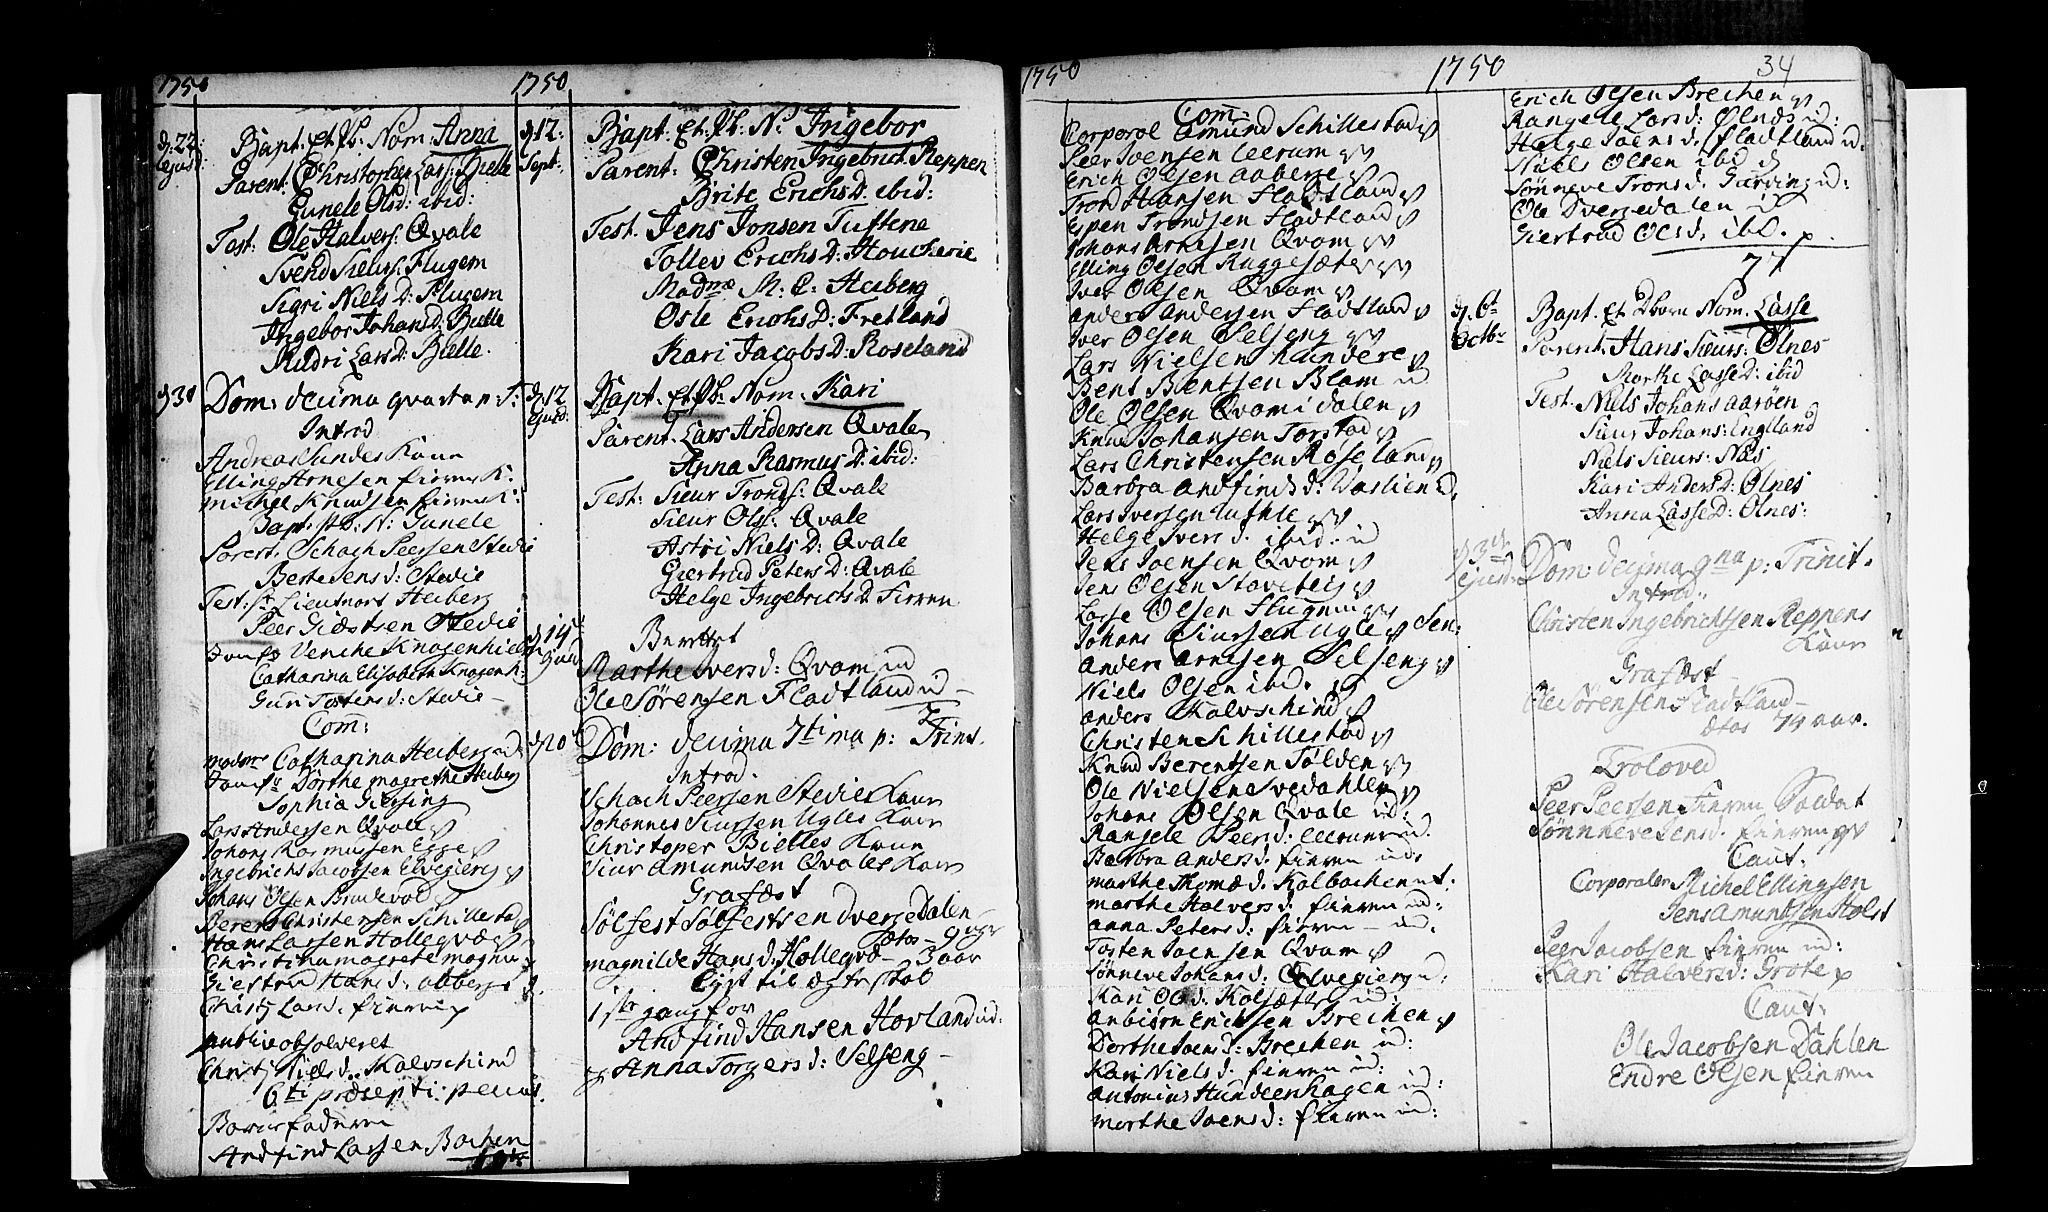 1750
1750
d: 22:
ejusd:
Bapt. Et. Pb. Nom. Anna
Parent. Christopher Lars: Bielle
Gunele Olsd: ibid:
Test: Ole Halvers: Qvale
Svend Sieurs: Flugem
Sigri Niels D: Flugem
Ingebor Johans D: Bielle
Kudri Lars D: Bielle.
d 30
Dom: decima quarta p: T:
Introd
Andreas Kone
Elling Arnesen firren K:
Michel Knudsen firren K:
Bapt. N: Gunele
Parent. Schach Peersen Stedie
Berte Jens d: Stedie
Test: Sr Lieutnant Heiberg
Peer Stedie
Venche Knagenhielm
Catharina Elisabeth Knagenh:
Guri Tostens d: Stedie
Com:
Madme Catharina Heiberg ud
Dorthe Magrethe Heiberg
Sophia Giersing
Lars Andersen Qvale
Johans Rasmussen Egge
Ingebricht Jacobsen Elvegierg
Johans Olsen Brudevol
Berent Christensen Schillestad
Hans Larsen Hollegvæ
Christina Magrete Magnus
Giertrud Hans d: abberge d.
Christj Lars d. firren
publice absolveret
Christj Niels d. Kalvschind
6ti præcepti
Barnefaderen
Andfind Larssen Bochen
d 12:
Sept:
Bapt. Et. Pb. N: Ingebor
Parent: Christen Ingebricht. Reppen
Brite Erichs D. ibid:
Test. Jens Jonsen Tuftene
Tollev Erichs D: Houcherie
Madme M: C: Heiberg
Osle Erichs D: Fretland
Kari Jacobs D: Roseland
d: 12
Ejusd:
Bapt. Et. Pb. Nom. Kari
Parent. Lars Andersen Qvale
Anna Rasmus D: ibid:
Test: Sieur Tronds: Qvale
Sieur Ols: Qvale
Astri Niels D: Qvale
Giertrud Peters D: Qvale
Helge Ingebrichts D: Firren
d 14
Ejusd
Berettet
Marthe Ivers d: Qvam ud
Ole Sörensen Fladtland ud
d 20
Dom: decima 7tima p: Trinit.
Introd.
Schach Peersen Stedies Kone
Johannes Siursen Ugles Kone
Christoper Bielles Kone
Siur Amundsen Qvales Kone
Grafæst
Sölfest Sölfestsen Dversedalen
ætas - 9 uger
Magnilde Hans d: Hollegvæ - 3 aar
Lyst til ægteskab
1ste gang for
Andfind Hansen Hovland ud:
og Anna Torgers d: Selseng
1750
1750
34
Com
Corporal Amund Schillestad
Peer Joensen Leerum
Erich Olsen Aaberge
Trond Hansen Fladtland
Espen Trondsen Fladtland
Johans Arnesen Qvam
Elling Olsen Ruggesæter
Iver Olsen Qvam
Anders Andersen Fladtland
Iver Olsen Selseng
Lars Nielsen Haindere
Bent Bentsen Blam ud
Ole Olsen Qvam i dalen
Knud Johansen Torstad
Lars Christensen Roseland
Barbra Andfinds d: Vaslien d.
Lars Iversen Lufhle
Helge Ivers d. ibid: ud
Jens Joensen Qvam
Jens Olsen Staveteig
Lasse Olsen Flugem
Johans Siursen Ugle Sen:
Anders Arnesen Selseng
Niels Olsen ibid.
Anders Kalvschind
Christen Schillestad
Knud Berentsen Tolden
Ole Nielsen Svedahlen
Johans Olsen Qvale ud:
Rangele Peers d. Leerum ud.
Barbra Anders d. firren ud.
Marthe Thomæ d. Kalbachen ut.
Marthe Halvers d. firren ud:
Anna Peters d: firren - ud.
Tosten Joensen Qvam
Sönneve Johans d: Elvegierg ud:
Kari Ols d. Kalsæt ud:
Anbiörn Erichsen Brechen
Dorthe Joens d: Brechen ud:
Kari Niels d. firren ud:
Antonius Hundeenhagen ud:
Marthe Joens d: firren ud:
Erich Olsen Brechen
Rangele Lars d: Ølnæs ud:
Helge Joens d. Fladtland ud.
Niels Olsen ibid
Sönneve Trons d. Gierding ud:
Ole Dversedalen
Giertrud Ols d. ibd.
77
d. 6te
Octbr
Bapt. Et Dborn Nom. Lasse
Parent. Hans Sieurs: Ølnes
Marthe Lasse D: ibid
Test. Niels Johans Aaröen
Sieur Johans: England
Niels Sieurs: Næs
Kari Anders D: Ølnes
Anna Lasse D: Ølnes:
Ejusd:
Dom: decima 9na p: Trinit.
Introd.
Christen Ingebrichtsen Reppens
Kone
Grafæst
Ole Sörensen Fladtland
ætas 74 aar.
Troloved
Peer Peersen Firren Soldat
Sönneve Jens d. firren
Caut.
Corporaler Michel Ellingsen
Jens Amundsen Holst
Peer Jacobsen firren ud:
Kari Halvers d: Grote
Caut:
Ole Jacobsen Dahlen
Endre Olsen firren